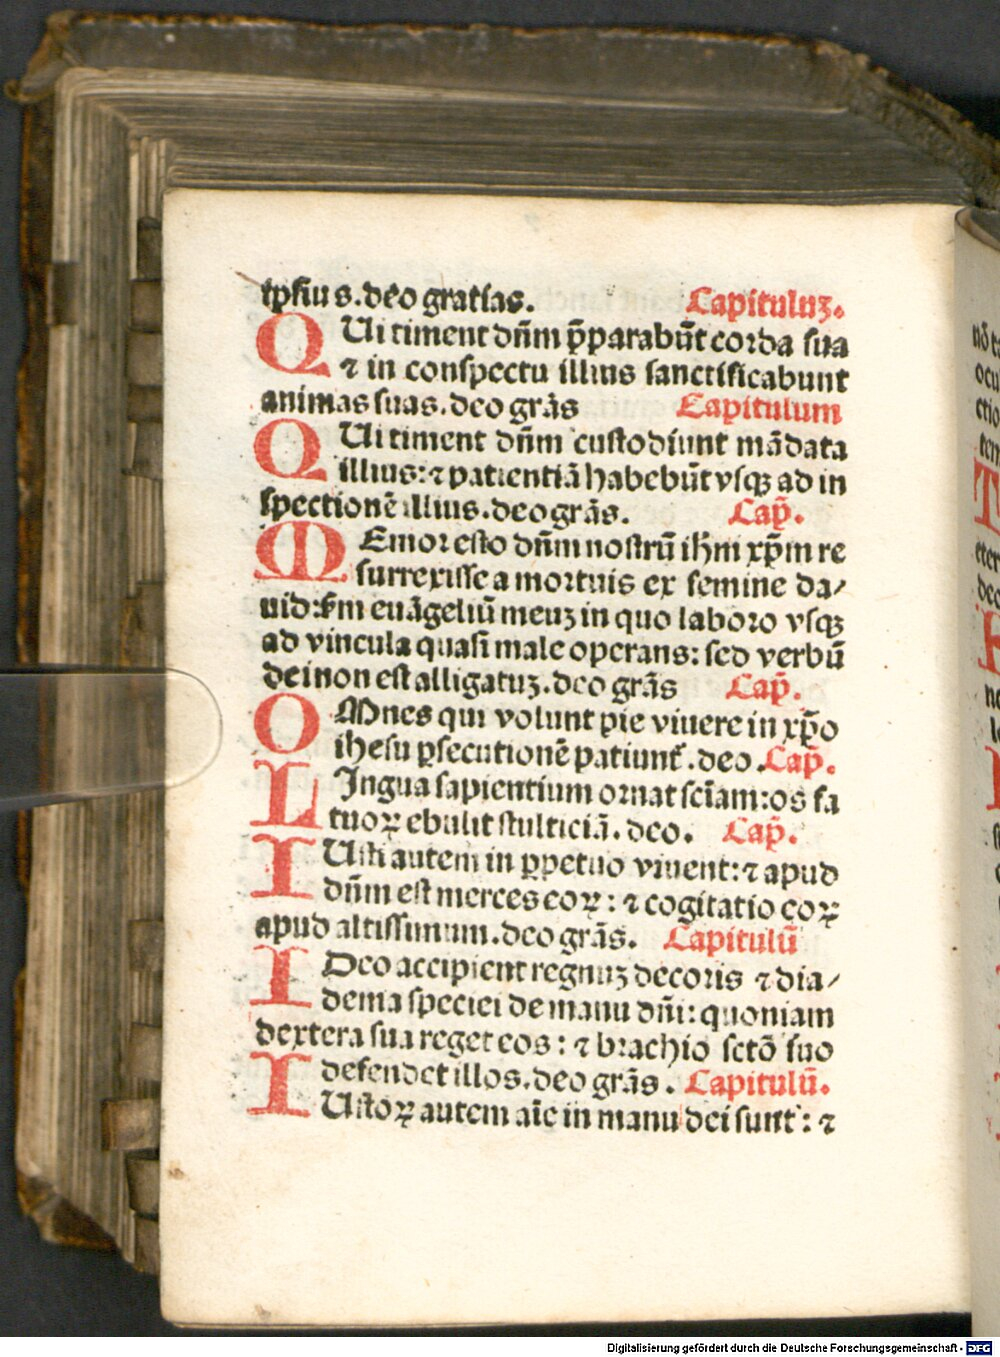 ipsius. deo gratias. Capituluꝫ.
QUi timent dn̄m p̄parabūt corda sua
⁊ in conspectu illius sanctificabunt
animas suas. deo grās Capitulum
QUi timent dn̄m custodiunt mādata
illius: ⁊ patientiā habebūt vsqꝫ ad in
spectionē illius. deo grās. Cap̄.
MEmor esto dn̄m nostrū ihm̄ xp̄m re
surrexisse a mortuis ex semine da/
uid: fm euāgeliū meuꝫ in quo laboro vsqꝫ
ad vincula quasi male operans: sed verbū
dei non est alligatuꝫ. deo grās Cap̄.
OMnes qui volunt pie viuere in xp̄o
ihesu ꝑsecutionē patiunt᷑. deo. Cap̄.
LIngua sapientium ornat sciam: os fa
tuoꝝ ebulit stulticiā. deo. Cap̄.
IUsti autem in ꝑpetuo viuent: ⁊ apud
dn̄m est merces eoꝝ: ⁊ cogitatio eoꝝ
apud altissimum. deo grās. Capitulū
IDeo accipient regnuꝫ decoris ⁊ dia/
dema speciei de manu dn̄i: quoniam
dextera sua reget eos: ⁊ brachio sctō suo
defendet illos. deo grās. Capitulū.
IUstoꝝ autem aīe in manu dei sunt: ⁊
nō
ocu
ctio
tem
T
eter
deo
Digitalisierung gefördert durch die Deutsche Forschungsgemeinschaft - DFG